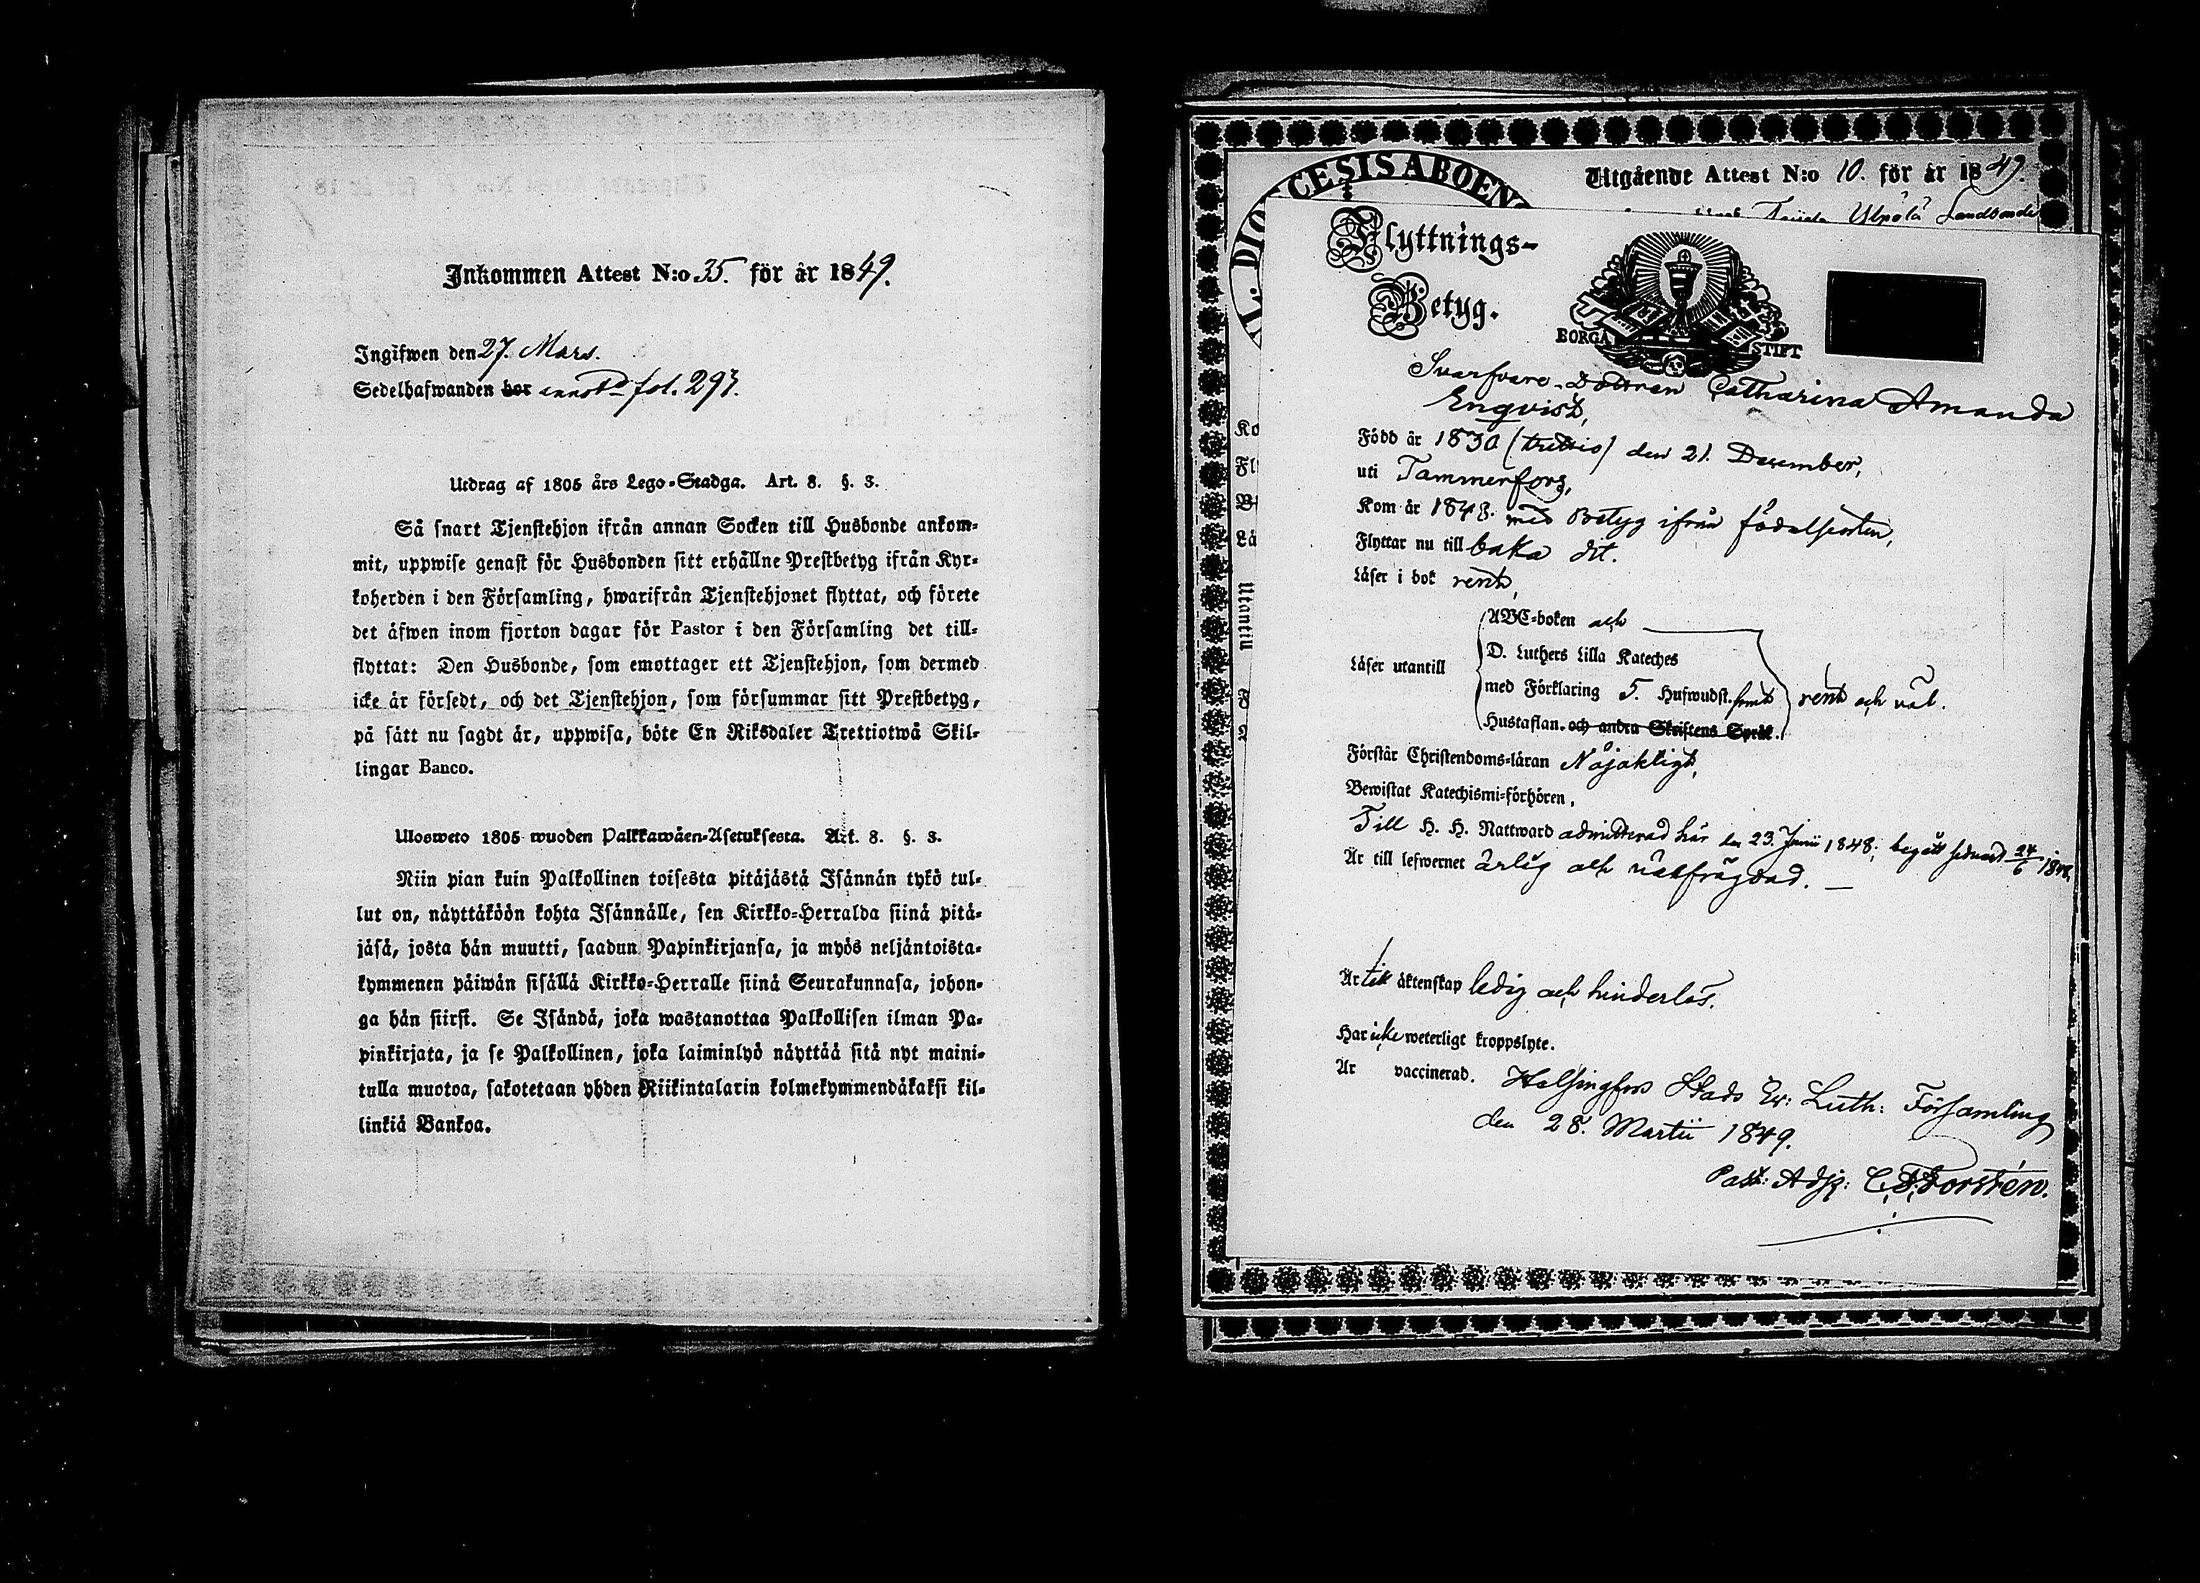 Inkommen Attest N:o 35. för år 1849.
Ingifwen den 27. Mars.
Sedelhafwanden bor annotd fol. 293.
Utdrag af 1805 års Lego-Stadga. Art. 8. §. 3.
Så snart Tjenstehjon ifrån annan Socken till Husbonde ankom-
mit, uppwise genast för Husbonden sitt erhållne Prestbetyg ifrån Kyr-
koherden i den Församling, hwarifrån Tjenstehjonet flyttat, och förete
det äfwen inom fjorton dagar för Pastor i den Församling det till-
flyttat: Den Husbonde, som emottager ett Tjenstehjon, som dermed
icke är försedt, och det Tjenstehjon, som försummar sitt Prestbetyg,
på sätt nu sagdt är, uppwisa, böte En Riksdaler Trettiotwå Skil-
lingar Banco.
Ulosweto 1805 wuoden Palkkawäen-Asetuksesta. Art. 8. §. 3.
Niin pian kuin Palkollinen toisesta pitäjästä Isännän tykö tul-
lut on, näyttäköön kohta Isännälle, sen Kirkko-Herralda siinä pitä-
jäsä, josta hän muutti, saadun Papinkirjansa, ja myös neljäntoista-
kymmenen päiwän sisällä Kirkko-Herralle siinä Seurakunnasa, johon-
ga hän siirsi. Se Isändä, joka wastanottaa Palkollisen ilman Pa-
pinkirjata, ja se Palkollinen, joka laiminlyö näyttää sitä nyt maini-
tulla muotoa, sakotetaan yhden Riikintalarin kolmekymmendäkaksi kil-
linkiä Bankoa.
Utgående Attest N:o 10. för år 1849.
Landbonde
DIOECESIS ABOENS
Flyttnings-
Betyg.
BORGÅ STIFT
Svarfvare-Dottren Catharina Amanda
Enqvist,
Född år 1830 (trettio) den 21. December,
uti Tammerfors,
Kom år 1848. med Betyg ifrån födelseorten,
Flyttar nu till baka dit.
Läser i bok rent,
Läser utantill
ABC-boken och
D. Luthers Lilla Kateches
med Förklaring 5. Hufwudst. samt
Hustaflan. och andra Skriftens Språk.
rent och väl.
Förstår Christendoms-läran Nöjaktigt,
Bewistat Katechismi-förhören.
Till H. H. Nattward admitterad här den 23. Junii 1848; begått sednast 24/6 1848.
Är till lefwernet ärlig och välfrägdad.
Är till äktenskap ledig och hinderlös.
Har icke weterligt kroppslyte.
Är vaccinerad.
Helsingfors Stads Ev: Luth: Församling
den 28. Martii 1849.
Past: Adj: C. F. Forstén.
Ko
Fl
Lä
Utantill